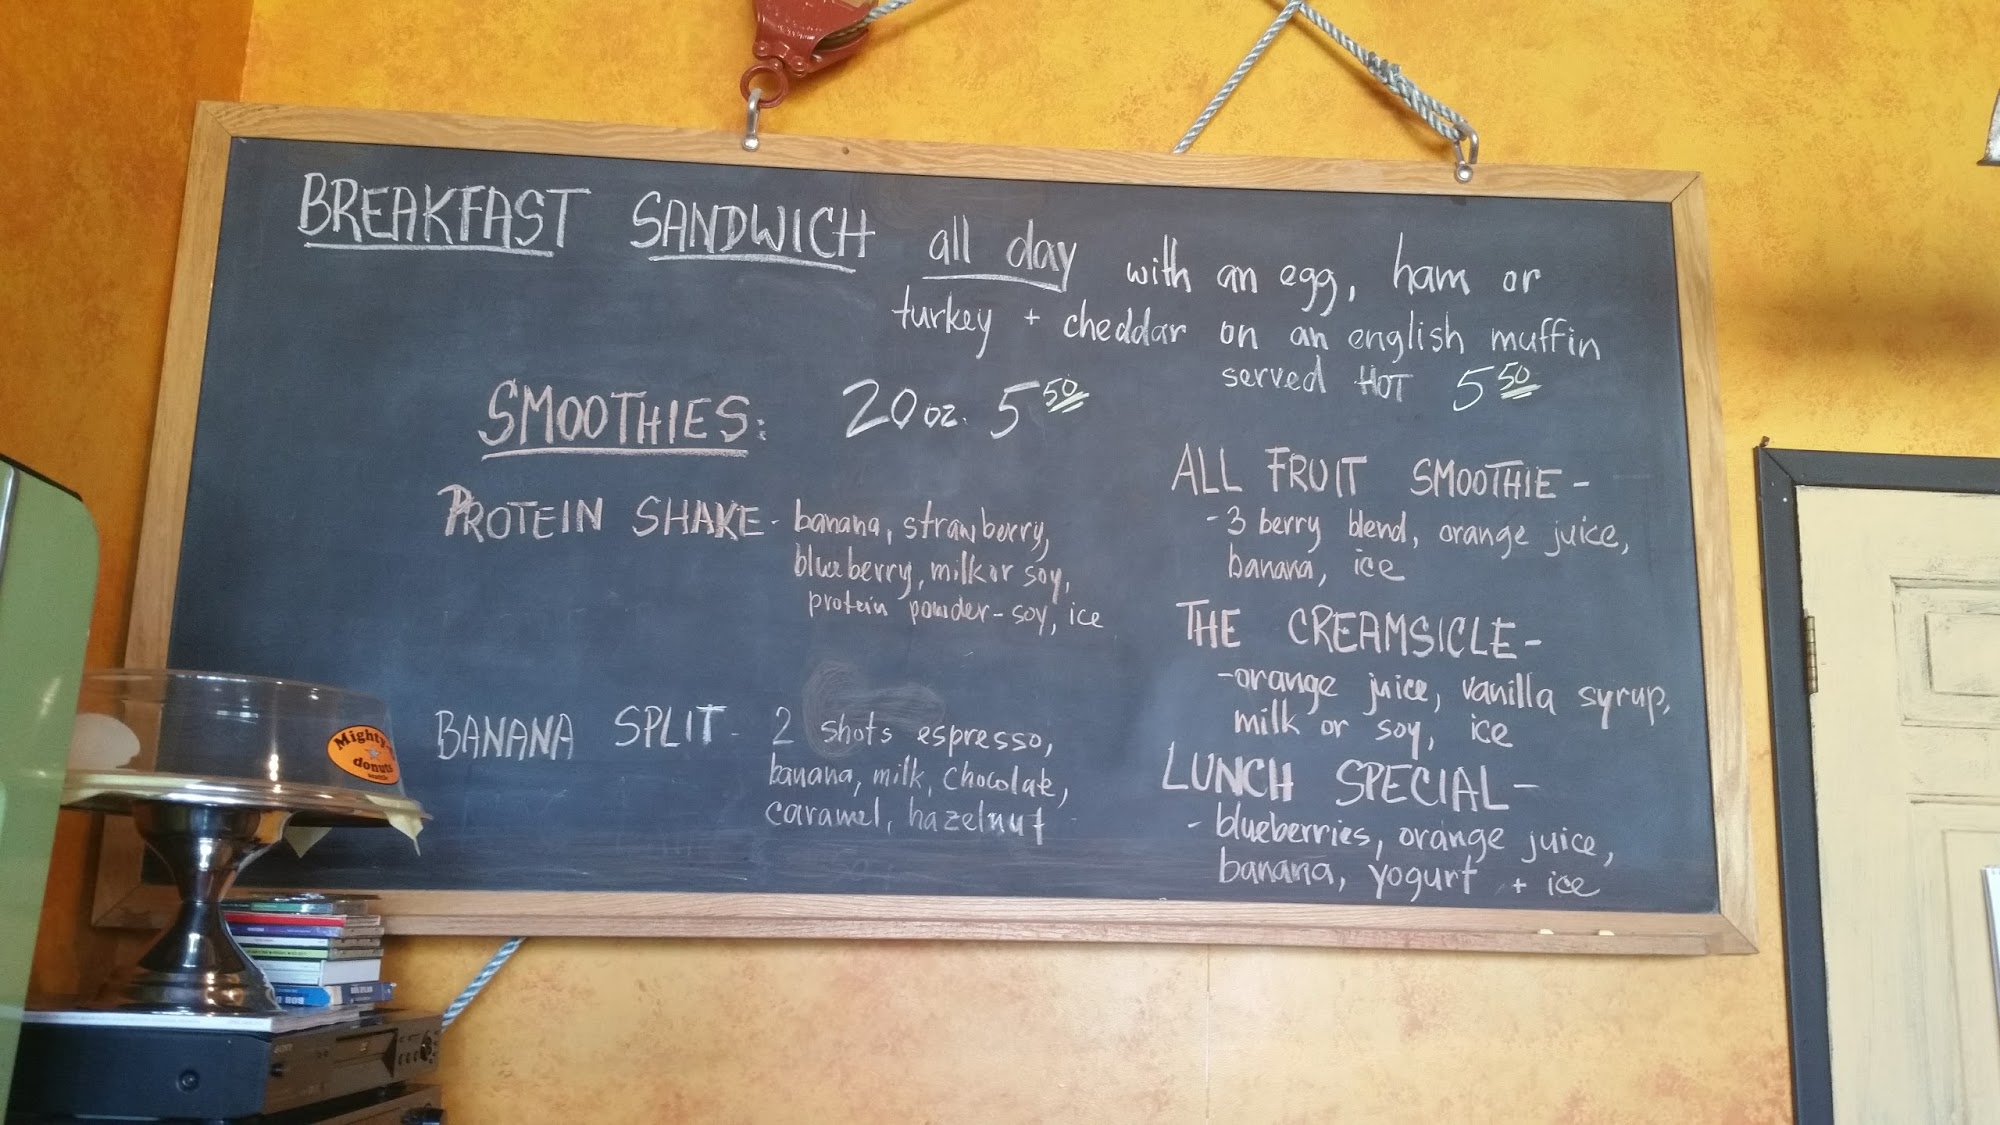 BREAKFAST SANDWICH all day with an egg, ham or
turkey + cheddar on an english muffin
served HOT 5 50
SMOOTHIES: 20 oz. 5 50
PROTEIN SHAKE - banana, strawberry,
blueberry, milk or soy,
protein powder - soy, ice
BANANA SPLIT - 2 shots espresso,
banana, milk, chocolate,
caramel, hazelnut
ALL FRUIT SMOOTHIE -
- 3 berry blend, orange juice,
banana, ice
THE CREAMSICLE -
- orange juice, vanilla syrup,
milk or soy, ice
LUNCH SPECIAL -
- blueberries, orange juice,
banana, yogurt + ice
Mighty-O
donuts
seattle
SONY